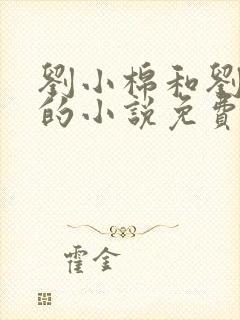 劉小棉和劉
的小說免費
霍金